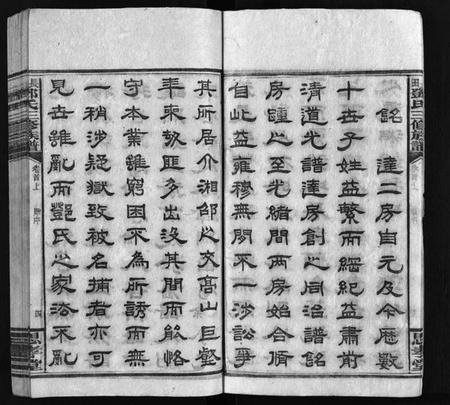 鄧氏三修族譜
卷首上
序
銘達二房自元及今歷數
十世子姓益繁而綱紀益肅前
清道光譜達房創之同治譜銘
房踵之至光緒間兩房始合脩
自此益雍穆無閒不一涉訟爭
其所居介湘邵之交高山巨壑
年來匪多出沒其間而能恪
守本業雖窮困不為所誘而無
一稍涉疑獄致被名捕者亦可
見世雖亂而鄧氏之家法不亂
鄧氏三修族譜
卷首上
序
四